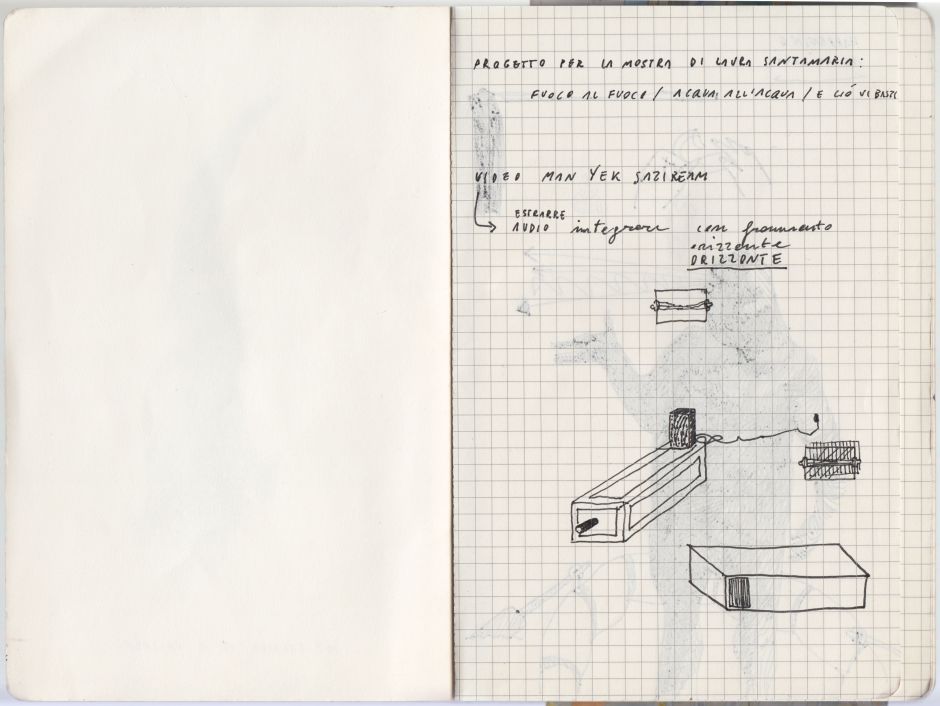 PROGETTO PER LA MOSTRA DI LAURA SANTAMARIA:
FUOCO AL FUOCO / ACQUA ALL'ACQUA / E CIÓ VI BASTI
VIDEO MAN YEK SAZIREAM
ESTRARRE
AUDIO integrare con frammento
orizzonte
ORIZZONTE